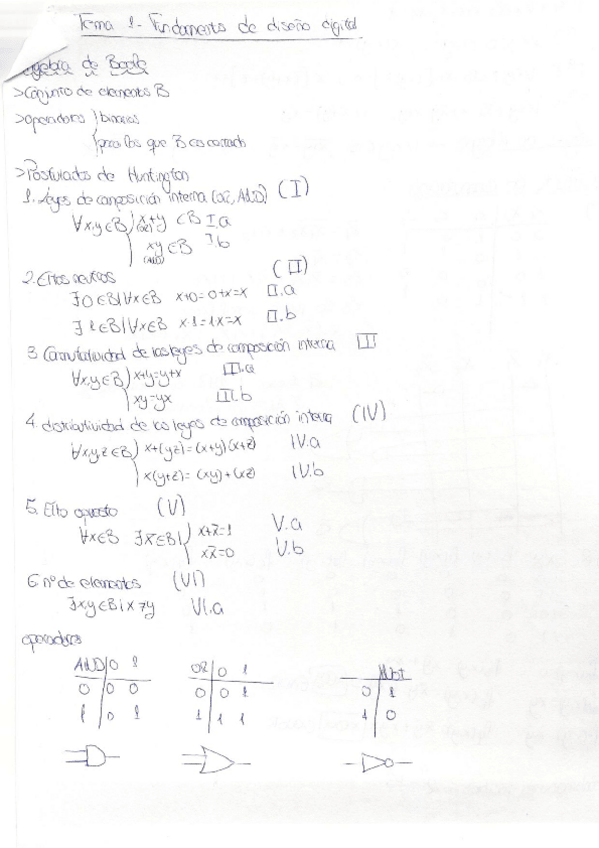 Tema 1.- Fundamentos de diseño digital
Algebra de Boole
>Conjunto de elementos B
>operadores binarios
para los que B es cerrado
>Postulados de Huntington
1. Leyes de composición interna (OR, AND) (I)
∀x,y∈B x+y ∈B I.a
(OR)
xy ∈B I.b
(AND)
2. Eltos neutros (II)
∃0∈B|∀x∈B x+0=0+x=x II.a
∃1∈B|∀x∈B x·1=1·x=x II.b
3. Conmutatividad de las leyes de composición interna III
∀x,y∈B x+y=y+x III.a
xy=yx III.b
4. distributividad de las leyes de composición interna (IV)
∀x,y,z∈B x+(yz)=(x+y)(x+z) IV.a
x(y+z)=(xy)+(xz) IV.b
5. Elto opuesto (V)
∀x∈B ∃x̄∈B| x+x̄=1 V.a
xx̄=0 V.b
6. nº de elementos (VI)
∃x,y∈B| x≠y VI.a
operadores
AND 0 1 OR 0 1 Not
0 0 0 0 0 1 0 1
1 0 1 1 1 1 1 0